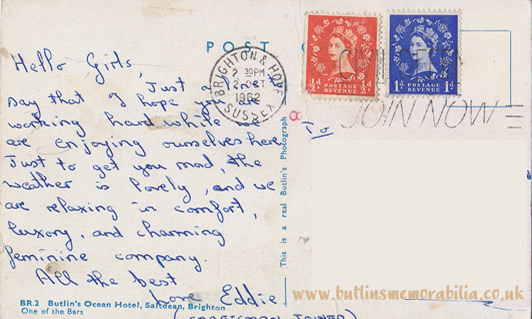 POST
Hello Girls,
Just a
say that I hope
working hard while we
are enjoying ourselves here
Just to get you mad, the
weather is lovely, and we
are relaxing in comfort,
luxury, and charming
feminine company.
All the best
Love Eddie
(CRAFTSMAN JOINER)
BRIGHTON & HOVE
2 30PM
2 OCT
1962
SUSSEX
½d POSTAGE REVENUE ½d
1d POSTAGE REVENUE 1d
JOIN NOW
To
This is a real Butlin's Photograph
BR.2 Butlin's Ocean Hotel, Saltdean, Brighton
One of the Bars
www.butlinsmemorabilia.co.uk